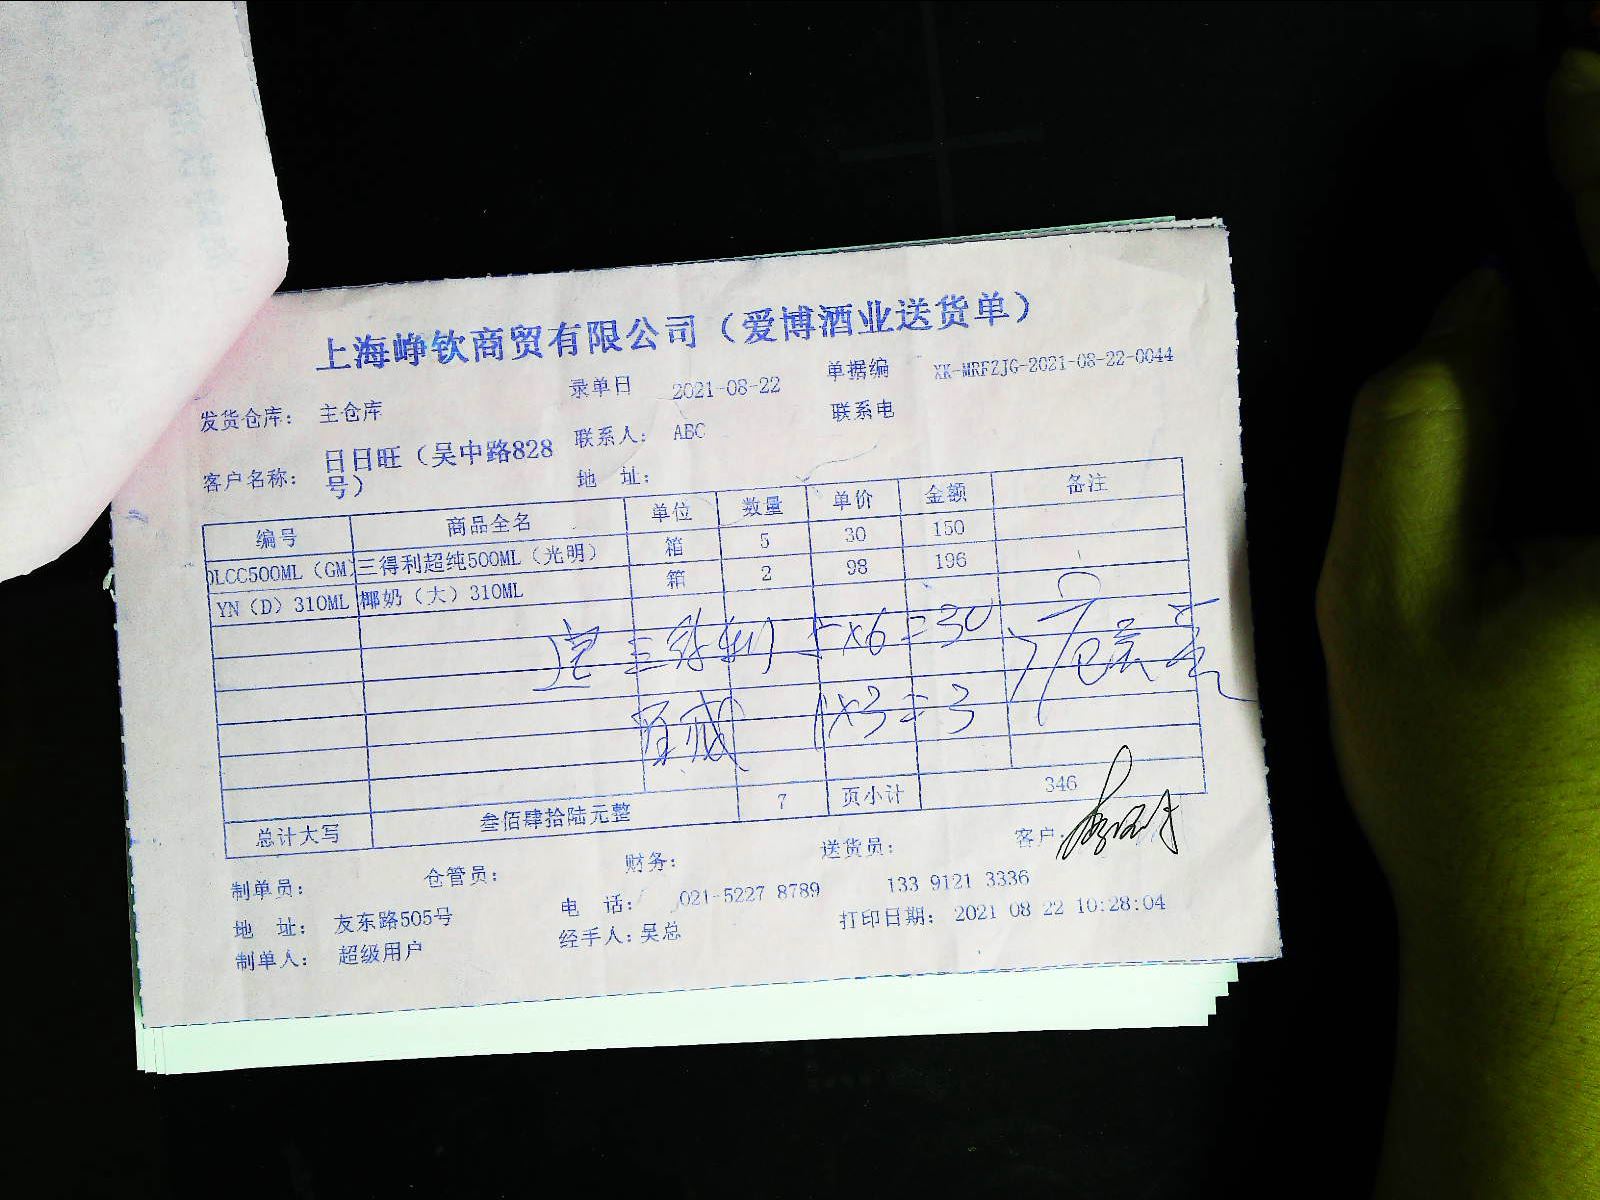 上海峥钦商贸有限公司（爱博酒业送货单）
录单日 2021-08-22 单据编 XK-MRFZJG-2021-08-22-0044
发货仓库： 主仓库 联系人： ABC 联系电
客户名称： 日日旺（吴中路828号） 地 址：
编号 商品全名 单位 数量 单价 金额 备注
OLCC500ML（GM） 三得利超纯500ML（光明） 箱 5 30 150
YN（D）310ML 椰奶（大）310ML 箱 2 98 196
5×6=30
1×3=3
总计大写 叁佰肆拾陆元整 7 页小计 346
制单员： 仓管员： 财务： 送货员： 客户：
地 址： 友东路505号 电 话： 021-5227 8789 133 9121 3336
制单人： 超级用户 经手人：吴总 打印日期： 2021 08 22 10:28:04